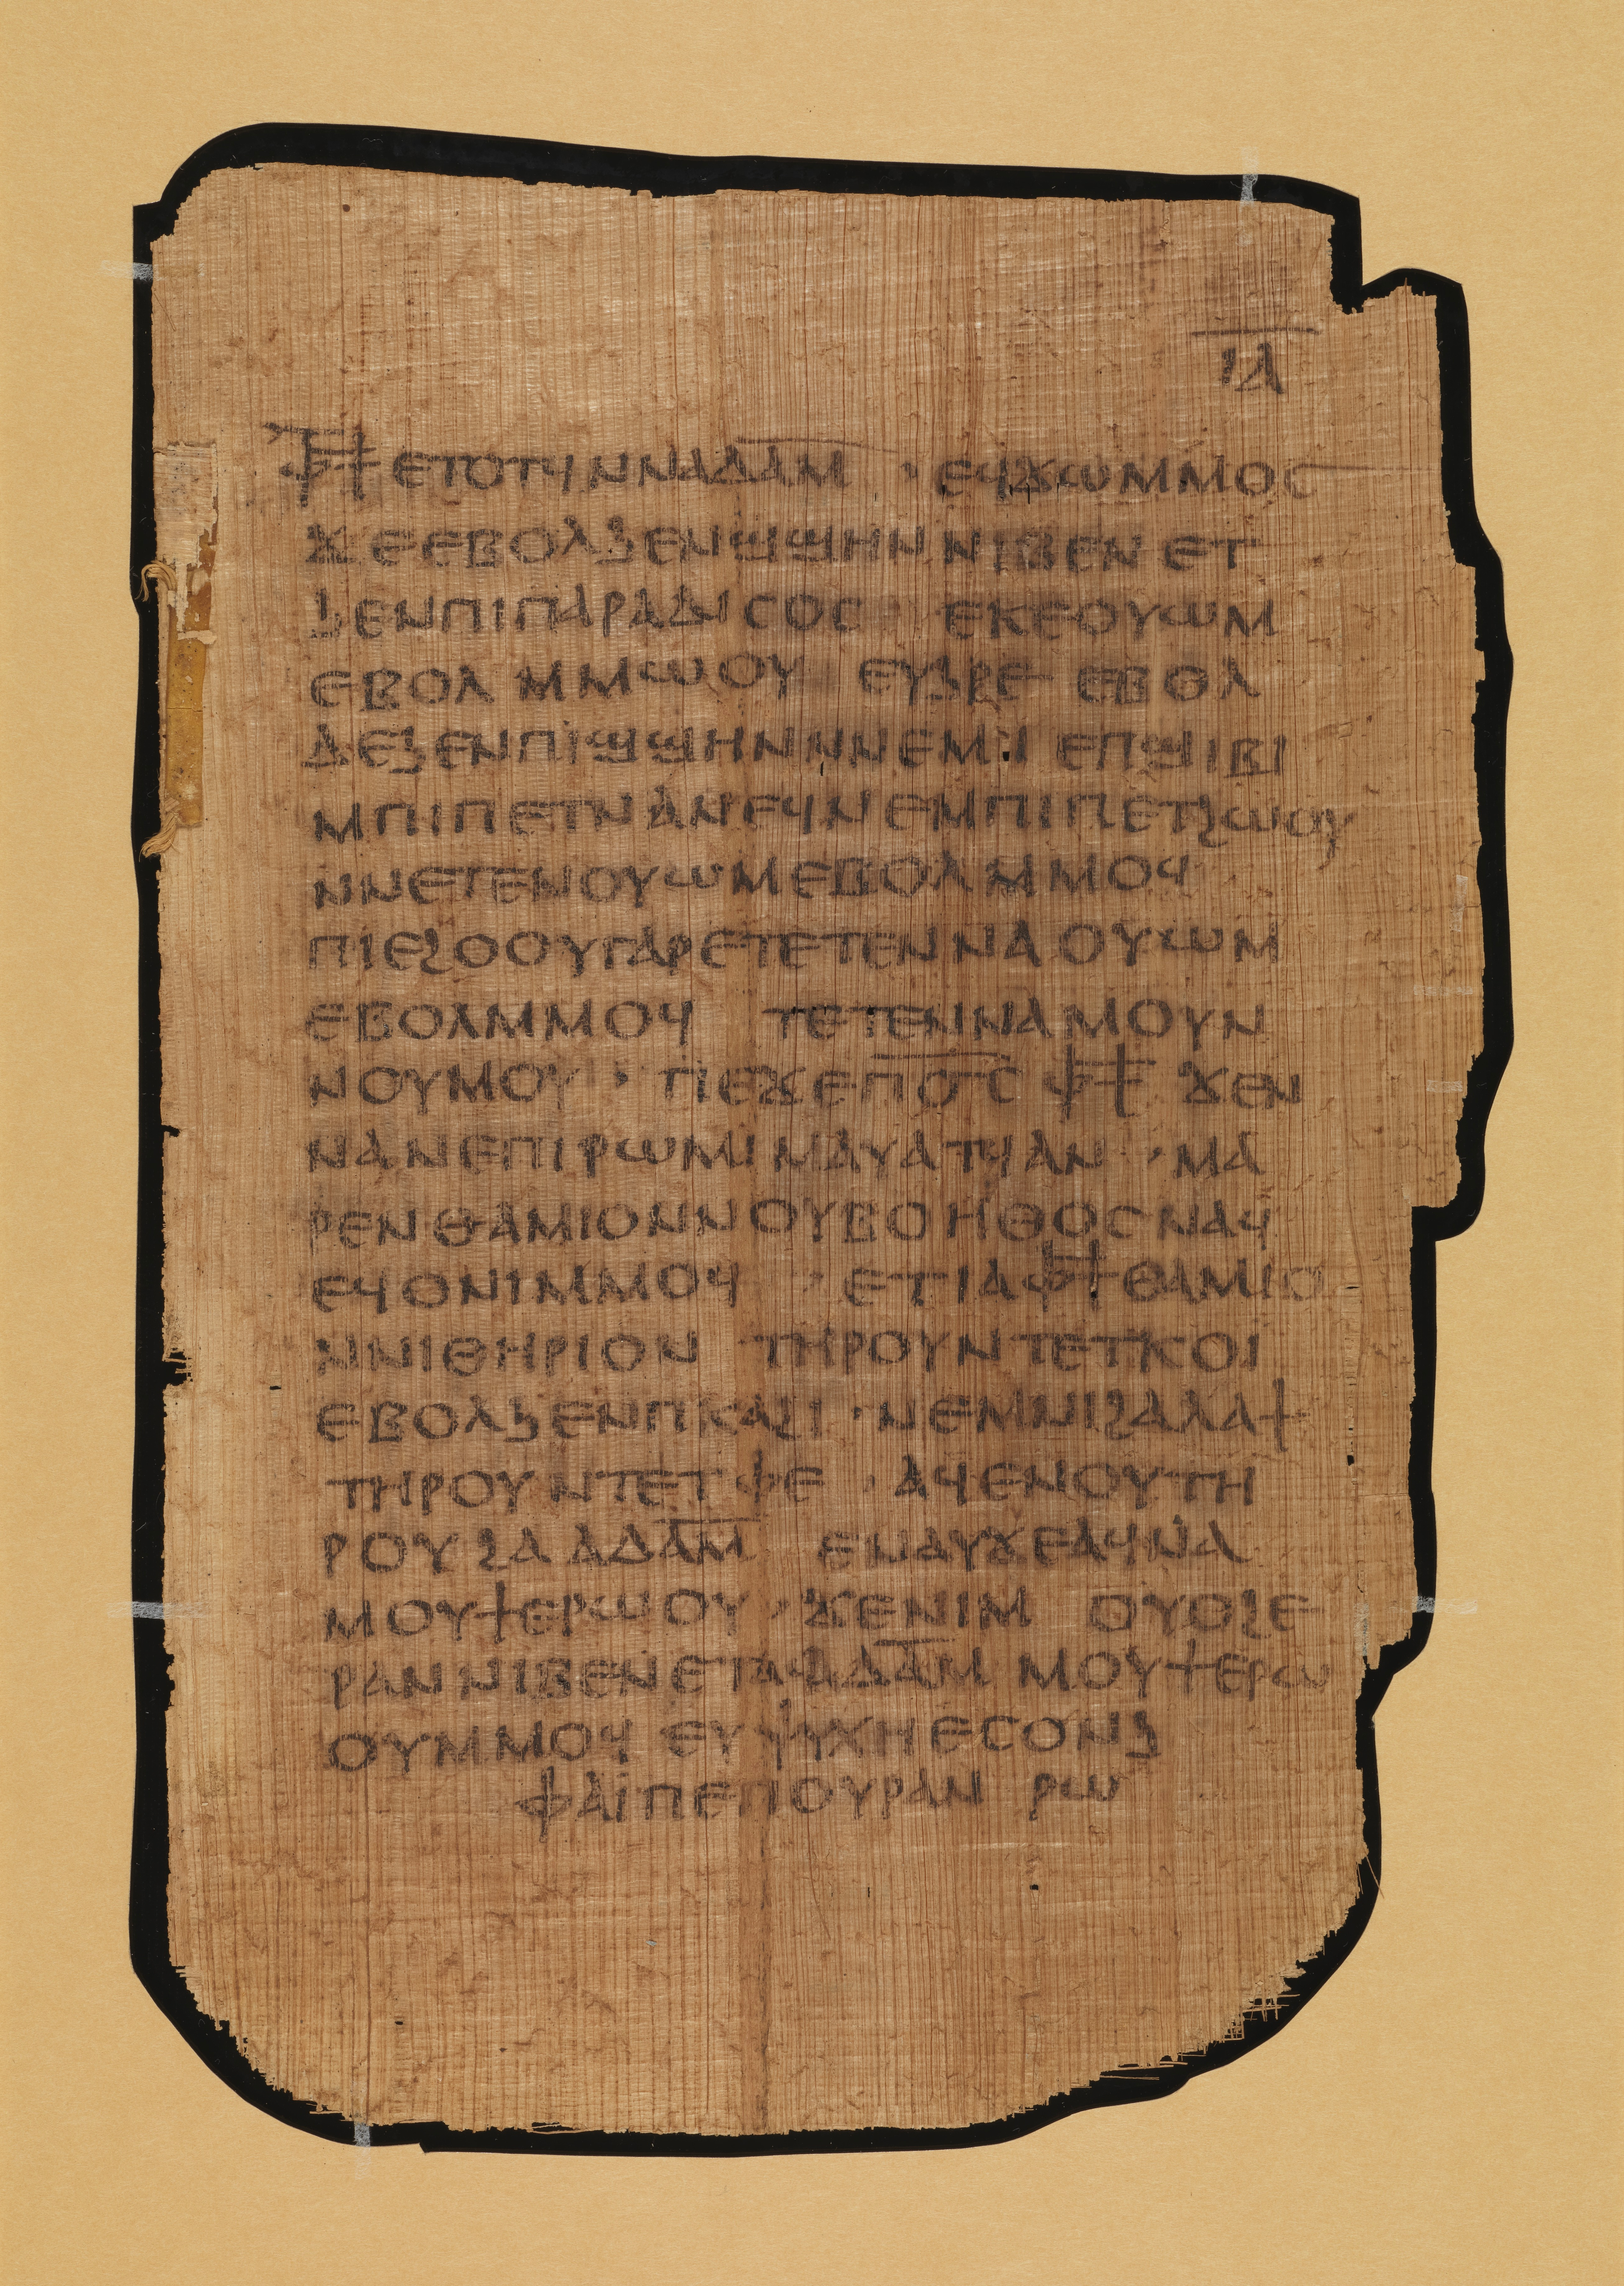 ⲓⲁ
ⲫϯ ⲉⲧⲟⲧϥ ⲛⲛⲁⲇⲁⲙ · ⲉϥϫⲱⲙⲙⲟⲥ
ϫⲉⲉⲃⲟⲗϧⲉⲛϣϣⲏⲛ ⲛⲓⲃⲉⲛ ⲉⲧ
ϧⲉⲛⲡⲓⲡⲁⲣⲁⲇⲓⲥⲟⲥ ⲉⲕⲉⲟⲩⲱⲙ
ⲉⲃⲟⲗ ⲙⲙⲱⲟⲩ ⲉⲩϧⲣⲉ ⲉⲃⲟⲗ
ⲇⲉϧⲉⲛⲡⲓϣϣⲏⲛⲛⲛⲉⲙⲓ ⲉⲡϣⲓⲃⲓ
ⲙⲡⲓⲡⲉⲧⲛⲁⲛⲉϥⲛⲉⲙⲡⲓⲡⲉⲧϩⲱⲟⲩ
ⲛⲛⲉⲧⲉⲛⲟⲩⲱⲙⲉⲃⲟⲗ ⲙⲙⲟϥ
ⲡⲓⲉϩⲟⲟⲩⲅⲁⲣⲉⲧⲉⲧⲉⲛⲛⲁ ⲟⲩⲱⲙ
ⲉⲃⲟⲗⲙⲙⲟϥ ⲧⲉⲧⲉⲛⲛⲁⲙⲟⲩⲛ
ⲛⲟⲩⲙⲟⲩ · ⲡⲉϫⲉⲡⲟ̅ⲥ̅ ⲫϯ ϫⲉⲛ
ⲛⲁⲛⲉⲡⲓⲣⲱⲙⲓ ⲙⲁⲩⲁⲧϥ ⲁⲛ · ⲙⲁ
ⲣⲉⲛⲑⲁⲙⲓⲟⲛⲛⲟⲩⲃⲟⲏⲑⲟⲥ ⲛⲁϥ
ⲉϥⲟⲛⲓⲙⲙⲟϥ · ⲉⲧⲓⲁⲫϯⲑⲁⲙⲓⲟ
ⲛⲛⲓⲑⲏⲣⲓⲟⲛ ⲧⲏⲣⲟⲩⲛⲧⲉⲧⲕⲟⲓ
ⲉⲃⲟⲗϧⲉⲛⲡⲕⲁϩⲓ · ⲛⲉⲙⲛⲓϩⲁⲗⲁϯ
ⲧⲏⲣⲟⲩ ⲛⲧⲉⲧⲫⲉ · ⲁϥⲉⲛⲟⲩ ⲧⲏ
ⲣⲟⲩ ϩⲁ ⲁⲇⲁⲙ ⲉⲛⲁⲩϫⲉⲁϥⲛⲁ
ⲙⲟⲩϯⲉⲣⲱⲟⲩ · ϫⲉⲛⲓⲙ ⲟⲩⲟϩⲉ
ⲣⲁⲛ ⲛⲓⲃⲉⲛ ⲉⲧⲁϥⲁⲇⲁⲙ ⲙⲟⲩϯⲉⲣⲱ
ⲟⲩⲙⲙⲟϥ ⲉⲩⲯⲩⲭⲏ ⲉⲥⲟⲛϧ
ⲫⲁⲓⲡⲉⲡⲟⲩⲣⲁⲛ ⲣⲱ